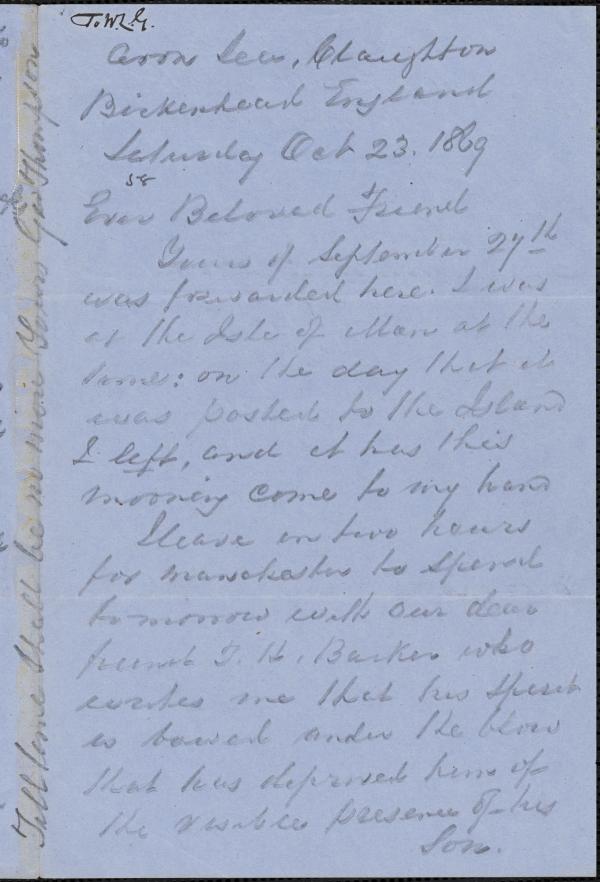 T.W.L.G.
Lea, Claughton
Birkenhead England
Saturday Oct 23. 1869
58
Ever Beloved Friend
Yours of September 27th
was forwarded here. I was
at the Isle of Man at the
time: on the day that it
was posted to the Island
I left, and it has this
morning come to my hand
I leave in two hours
for Manchester to spend
tomorrow with our dear
friend T. H. Barker who
writes me that his spirit
is bowed under the blow
that has deprived him of
the visible presence of his
Son.
Till time shall be no more Yours Geo Thompson